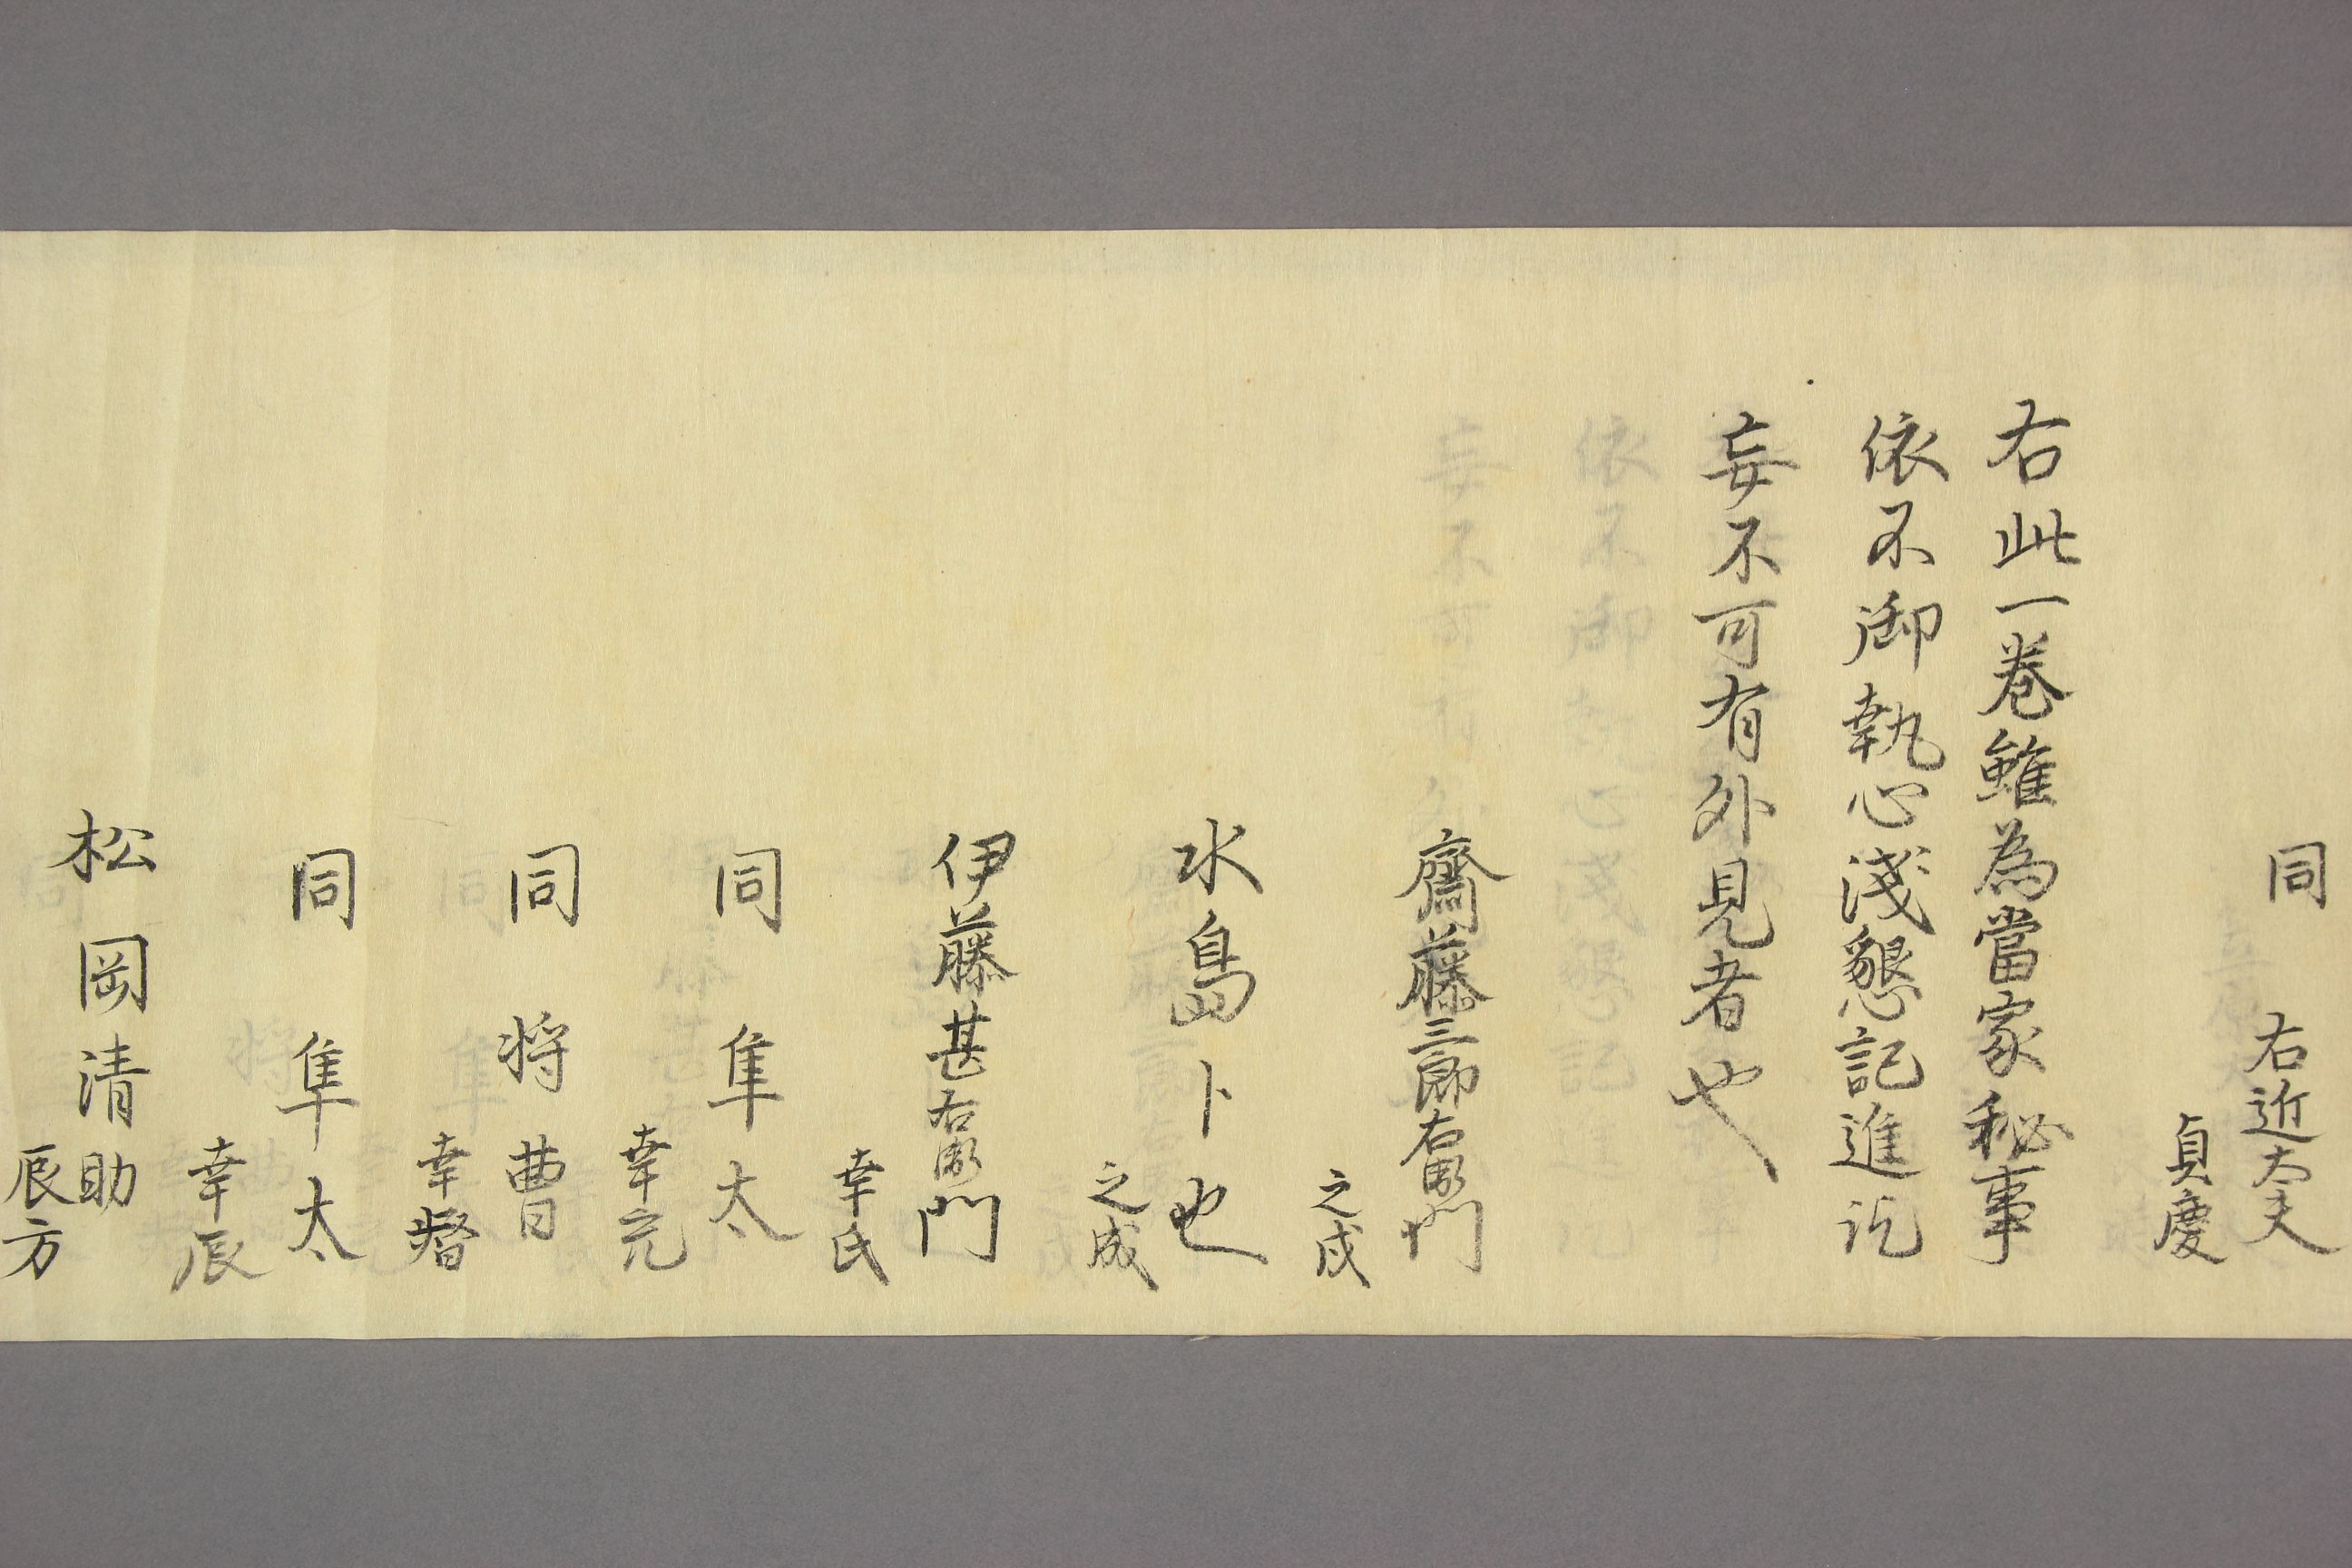 同 右近太夫
貞慶
右此一巻雖為當家秘事
依不御執心淺懇記進訖
妄不可有外見者也
齋藤三郎右衛門
之成
水島卜也
之成
伊藤甚右衛門
幸氏
同 隼太
幸充
同 将曹
幸督
同 隼太
幸辰
松岡清助
辰方